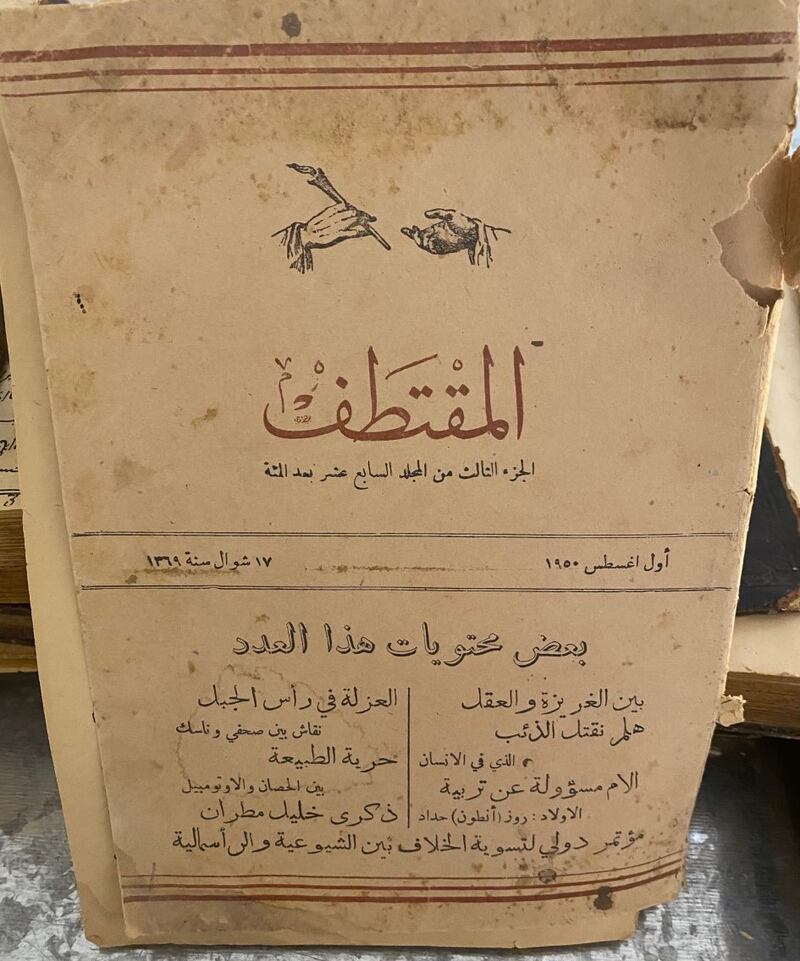 المقتطف
الجزء الثالث من المجلد السابع عشر بعد المئة
أول اغسطس ١٩٥٠
١٧ شوال سنة ١٣٦٩
بعض محتويات هذا العدد
بين الغريزة والعقل
هلم نقتل الذئب
الذي في الانسان
الام مسؤولة عن تربية
الاولاد : روز (أنطون) حداد
العزلة في رأس الجبل
نقاش بين صحفي وناسك
حرية الطبيعة
بين الحصان والاوتومبيل
ذكرى خليل مطران
مؤتمر دولي لتسوية الخلاف بين الشيوعية والرأسمالية